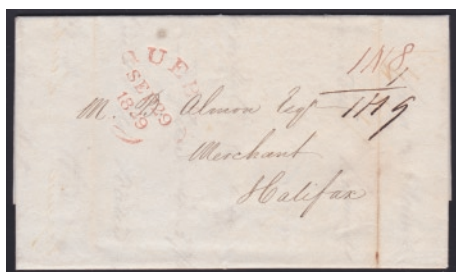 QUEBEC
SE 29
1839
1N8
1
1N9
M. B. Almon Esqr
Merchant
Halifax